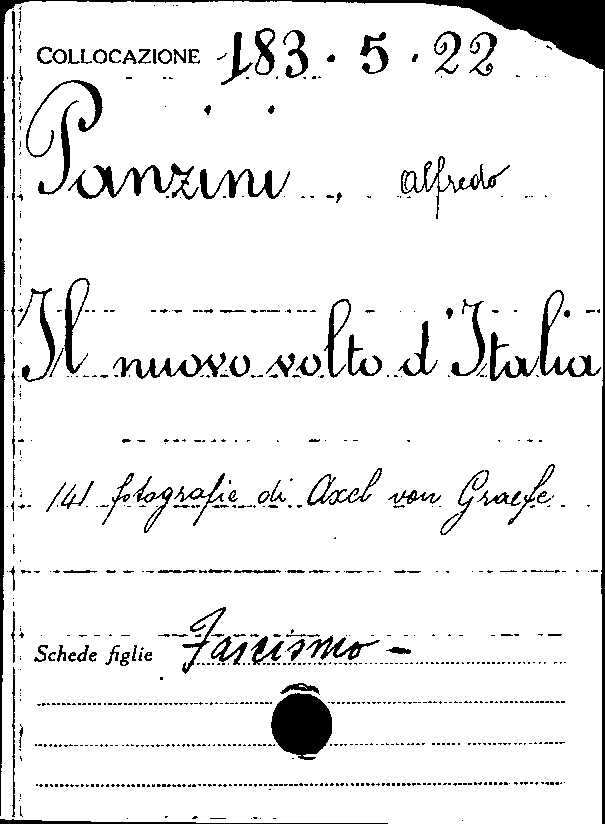 COLLOCAZIONE 183 · 5 · 22
Panzini, Alfredo
Il nuovo volto d'Italia
141 fotografie di Axel von Graefe
Schede figlie Fascismo -